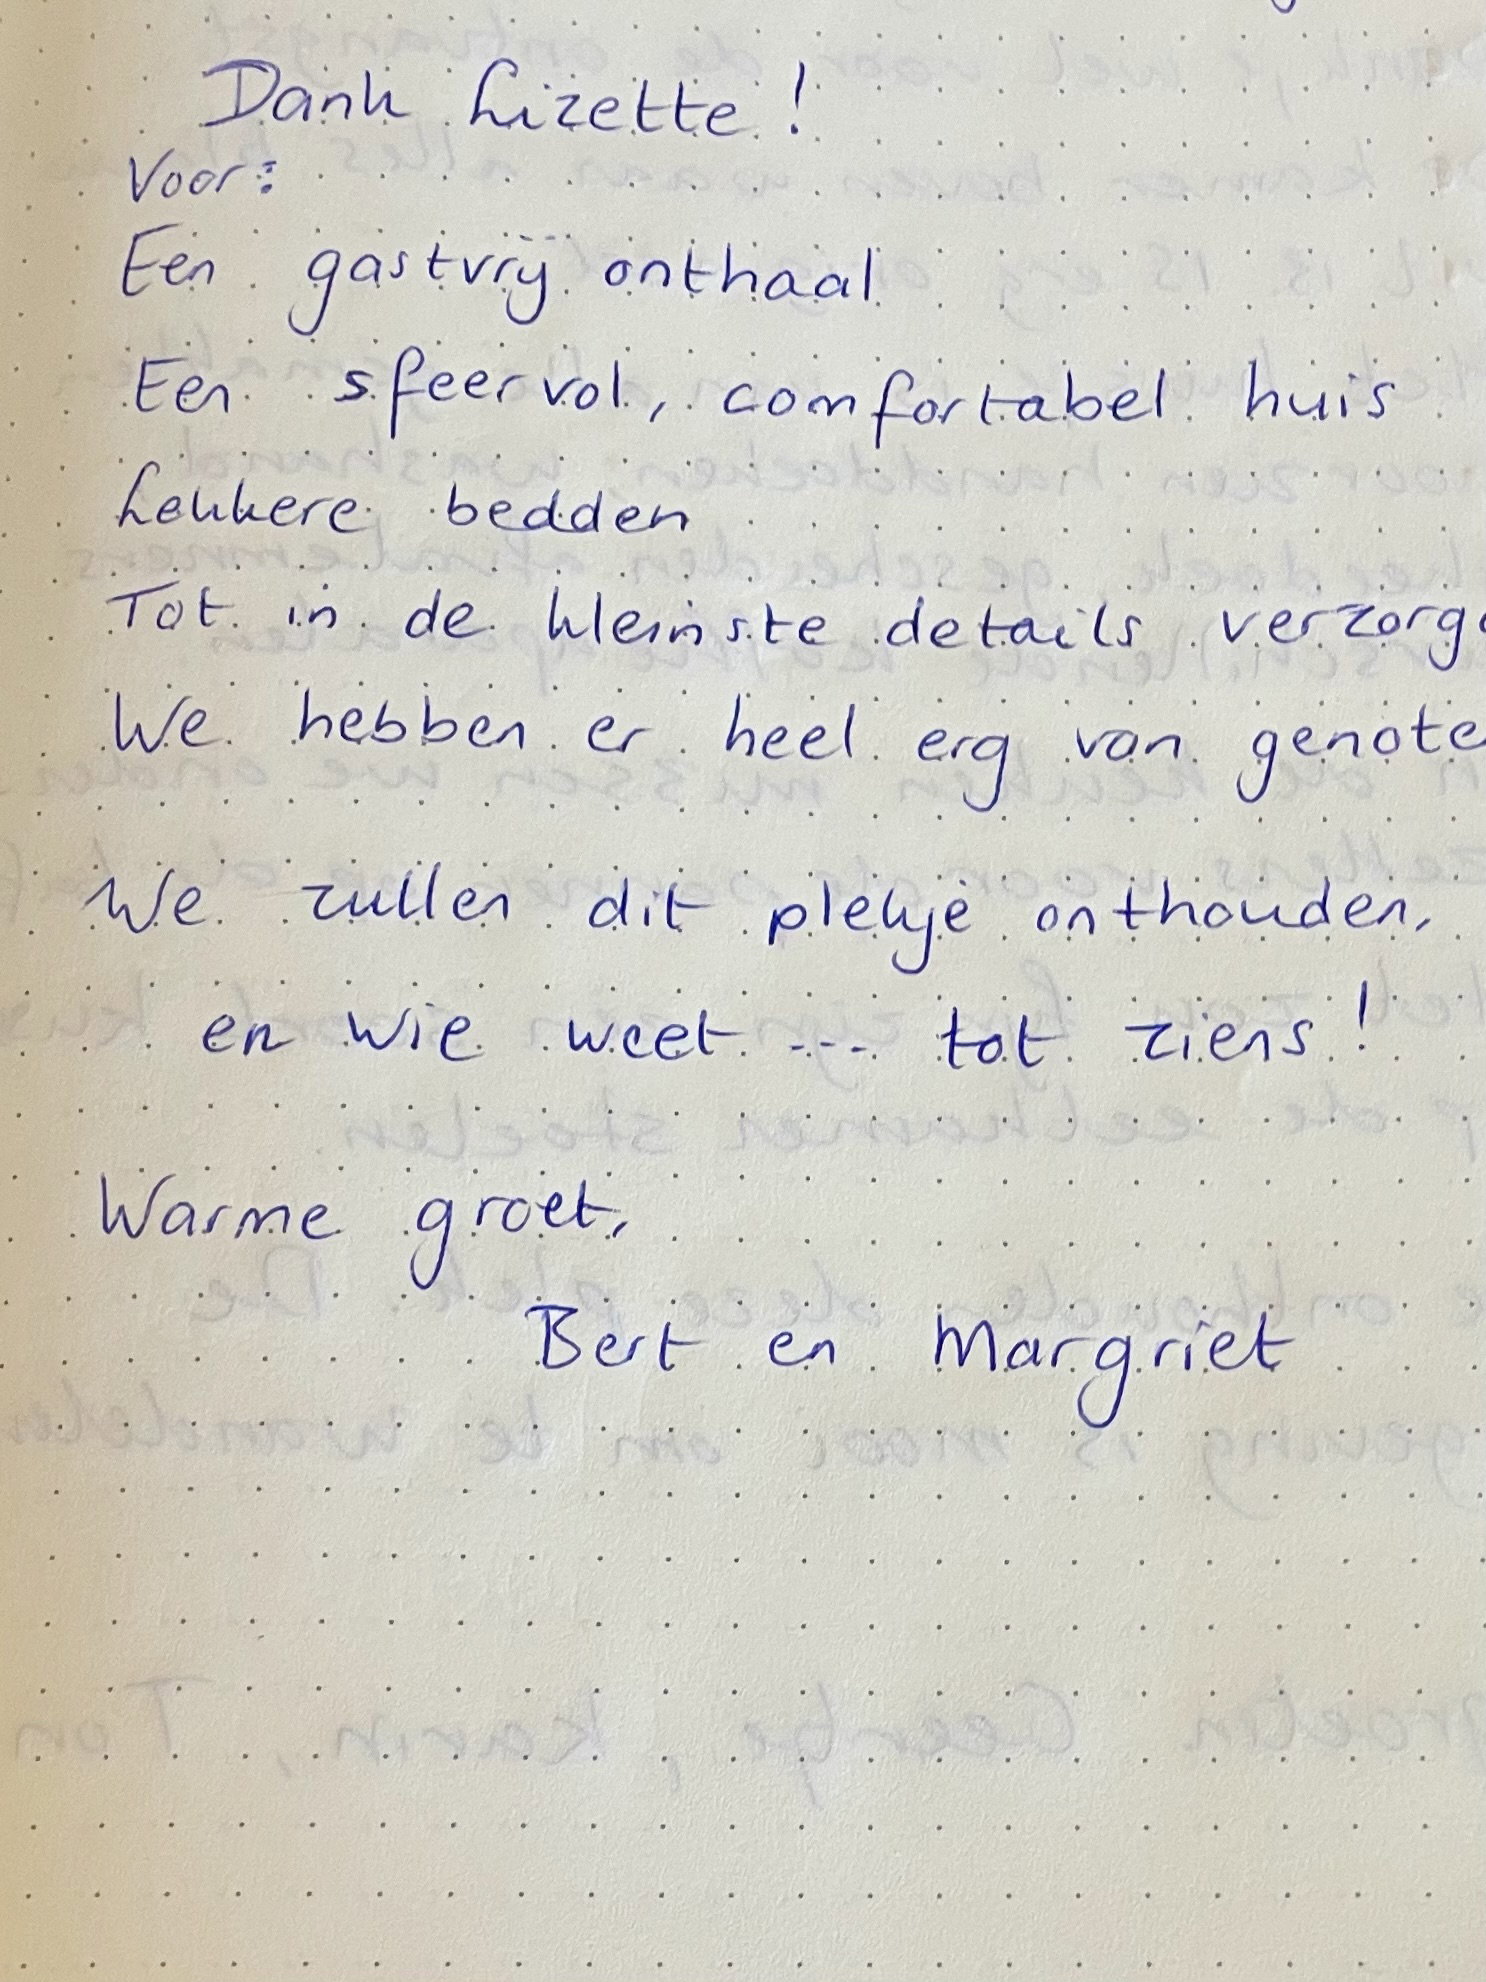 Dank Lizette!
Voor:
Een gastvrij onthaal
Een sfeervol, comfortabel huis
Lekkere bedden
Tot in de kleinste details verzorg
We hebben er heel erg van genote
We zullen dit plekje onthouden,
en wie weet --- tot ziens!
Warme groet,
Bert en Margriet